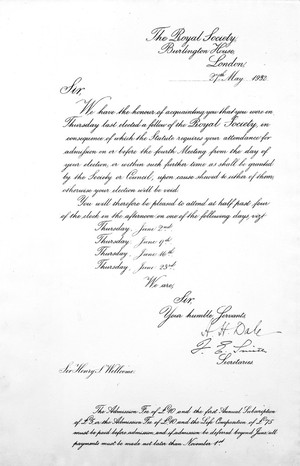 The Royal Society,
Burlington House,
London,
27th May 1932.
Sir,
We have the honour of acquainting you that you were on
Thursday last elected a fellow of the Royal Society, in
consequence of which the Statute requires your attendance for
admission on or before the fourth Meeting from the day of
your election, or within such further time as shall be granted
by the Society or Council, upon cause showed to either of them;
otherwise your election will be void.
You will therefore be pleased to attend at half past four
of the clock in the afternoon on one of the following days, viz:
Thursday June 2nd
Thursday June 9th
Thursday June 16th
Thursday June 23rd
We are,
Sir,
Your humble Servants
H H Dale
Secretaries
Sir Henry S. Wellcome.
The Admission Fee of £10 and the first Annual Subscription
of £5 or the Admission Fee of £10 and the Life Composition of £75
must be paid before admission, and if admission be deferred beyond June all
payments must be made not later than November 1st